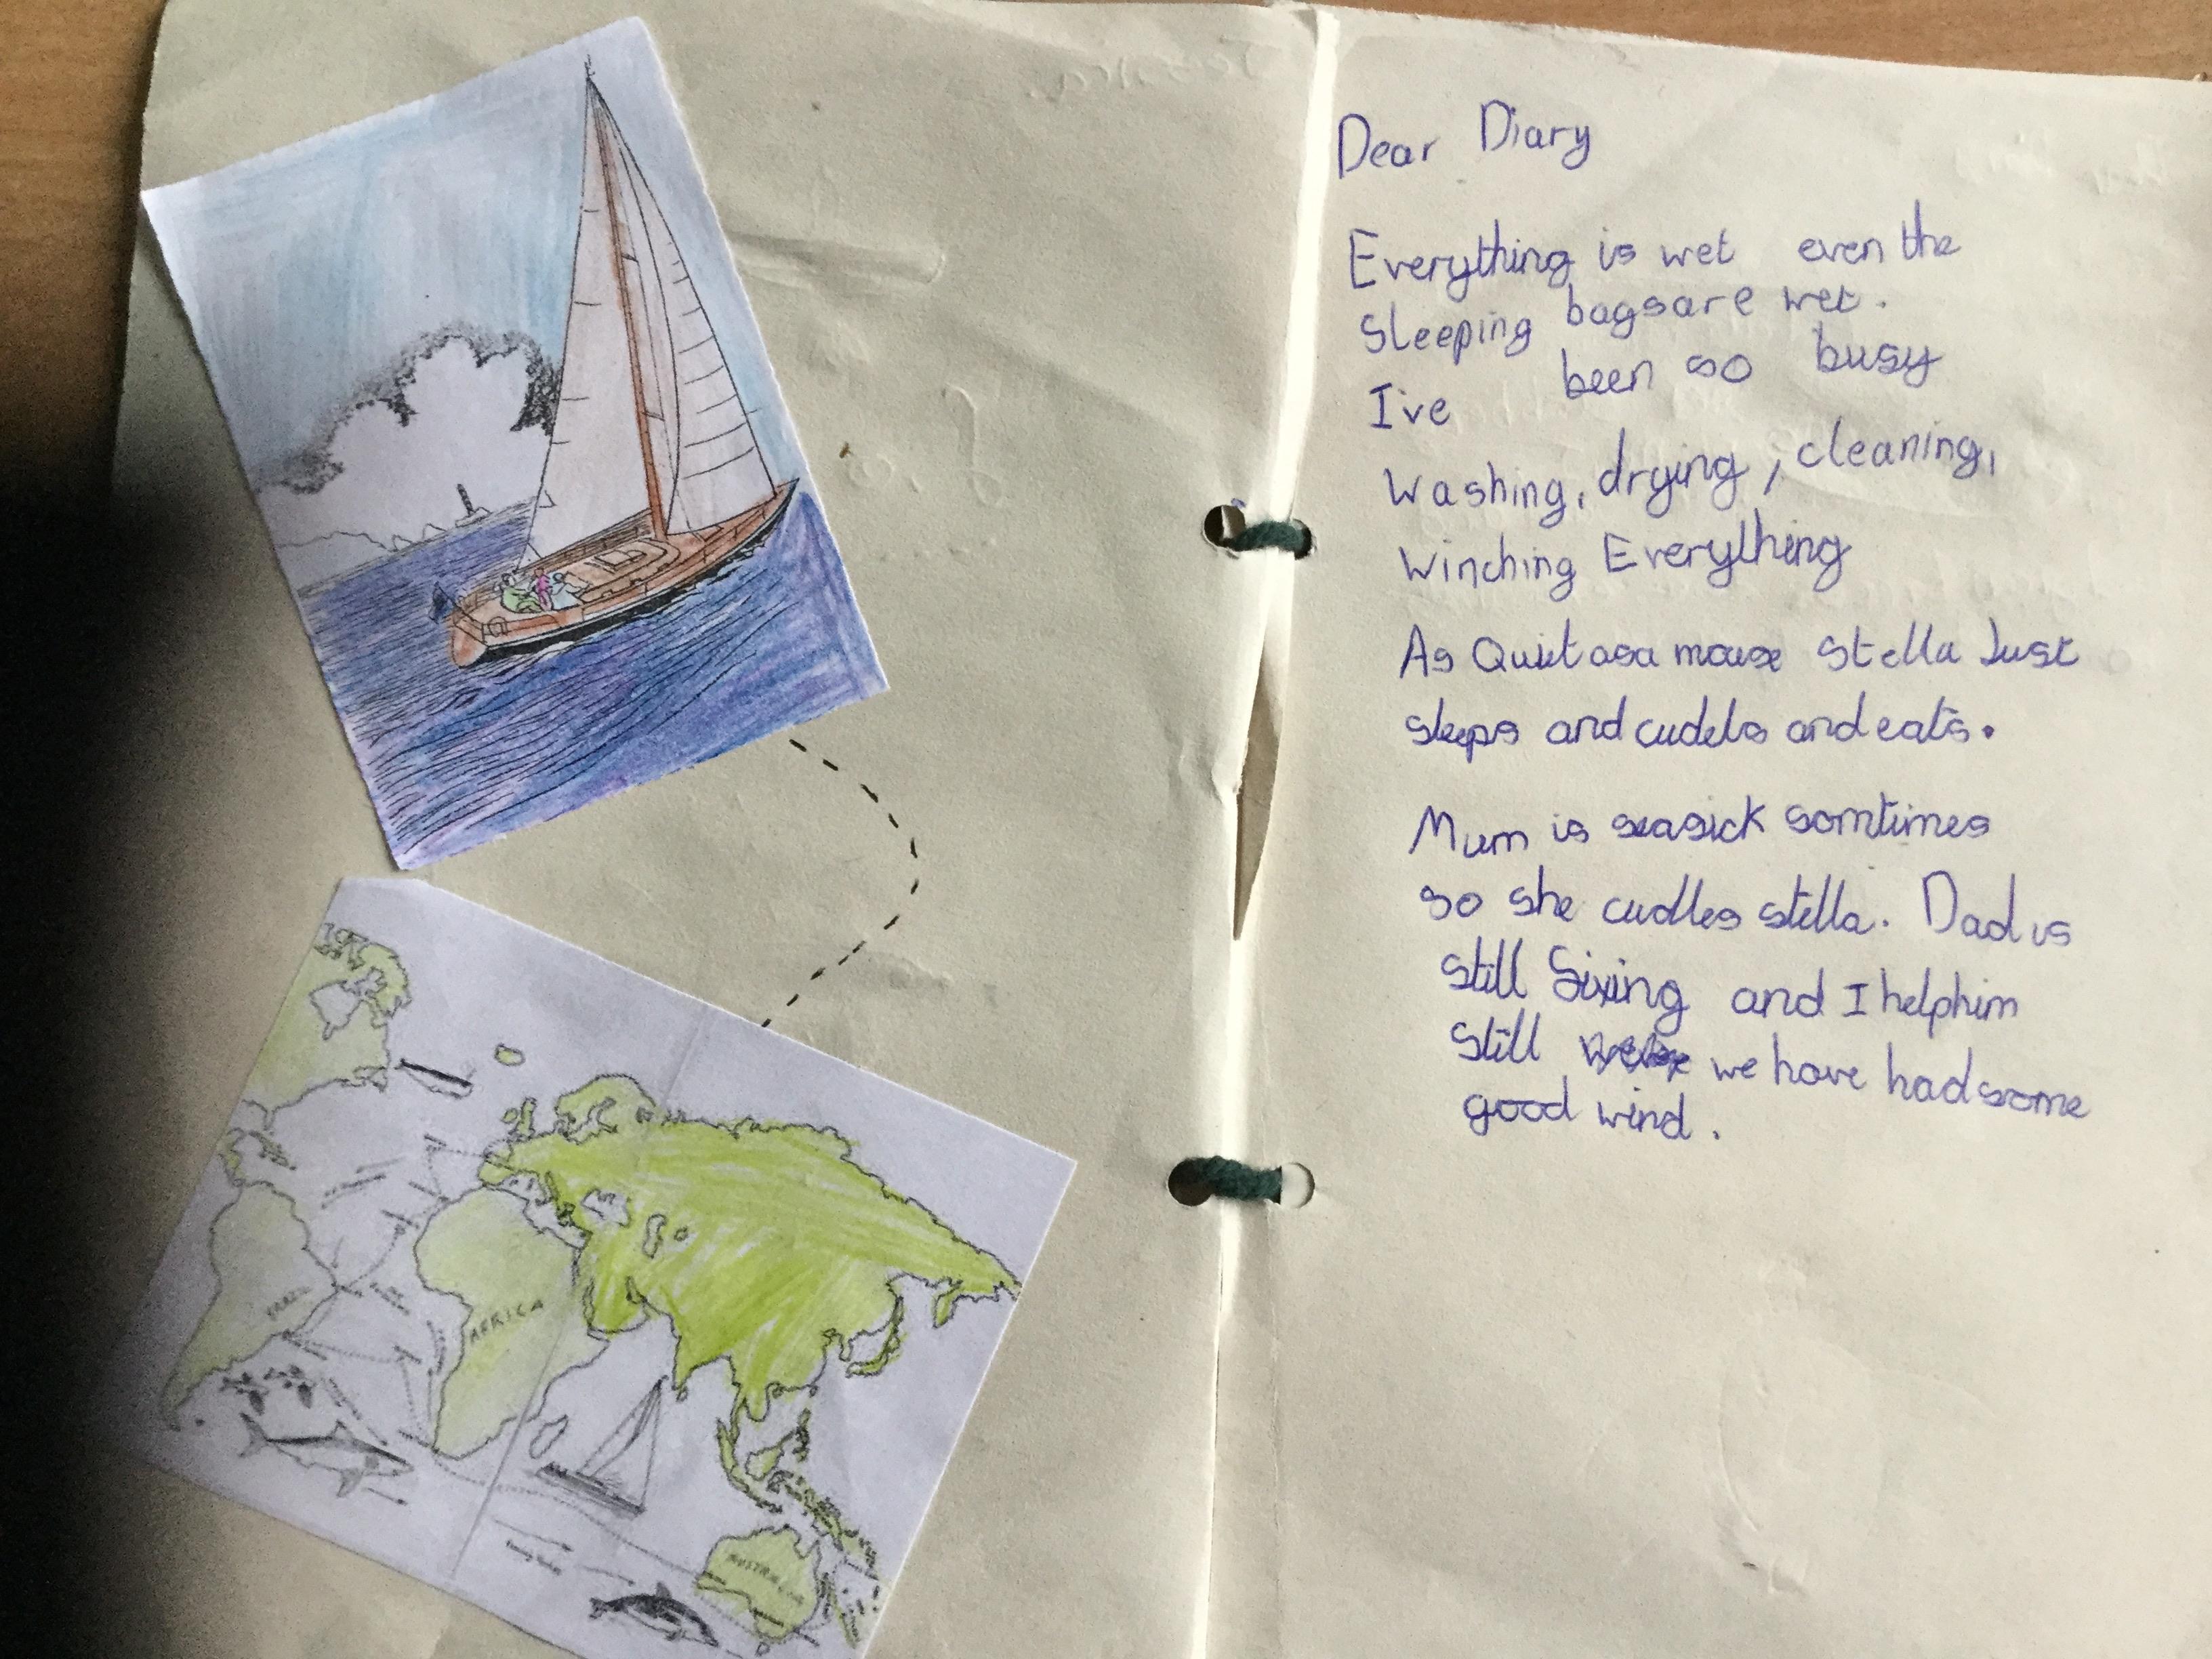 Dear Diary
Everything is wet even the
Sleeping bags are wet.
I've been so busy
Washing, drying, cleaning,
Winching Everything
As Quiet as a mouse Stella Just
sleeps and cudels and eats.
Mum is seasick somtimes
so she cudles stella. Dad is
still fixing and I help him
still we have had some
good wind.
BRAZIL
AFRICA
AUSTRALIA